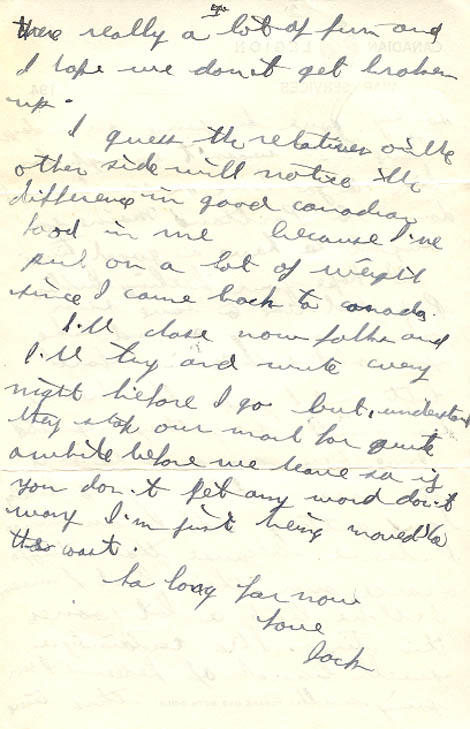 there really a lot of fun and
I hope we don't get broken
up.
I guess the relatives on the
other side will notice the
difference in good canadian
food in me because I've
put on a lot of weight
since I came back to canada.
I'll close now folks and
I'll try and write every
night before I go but I understand
they stop our mail for quite
awhile before we leave so if
you don't get any word don't
worry I'm just being moved to
the coast.
So long for now
Love
Jack